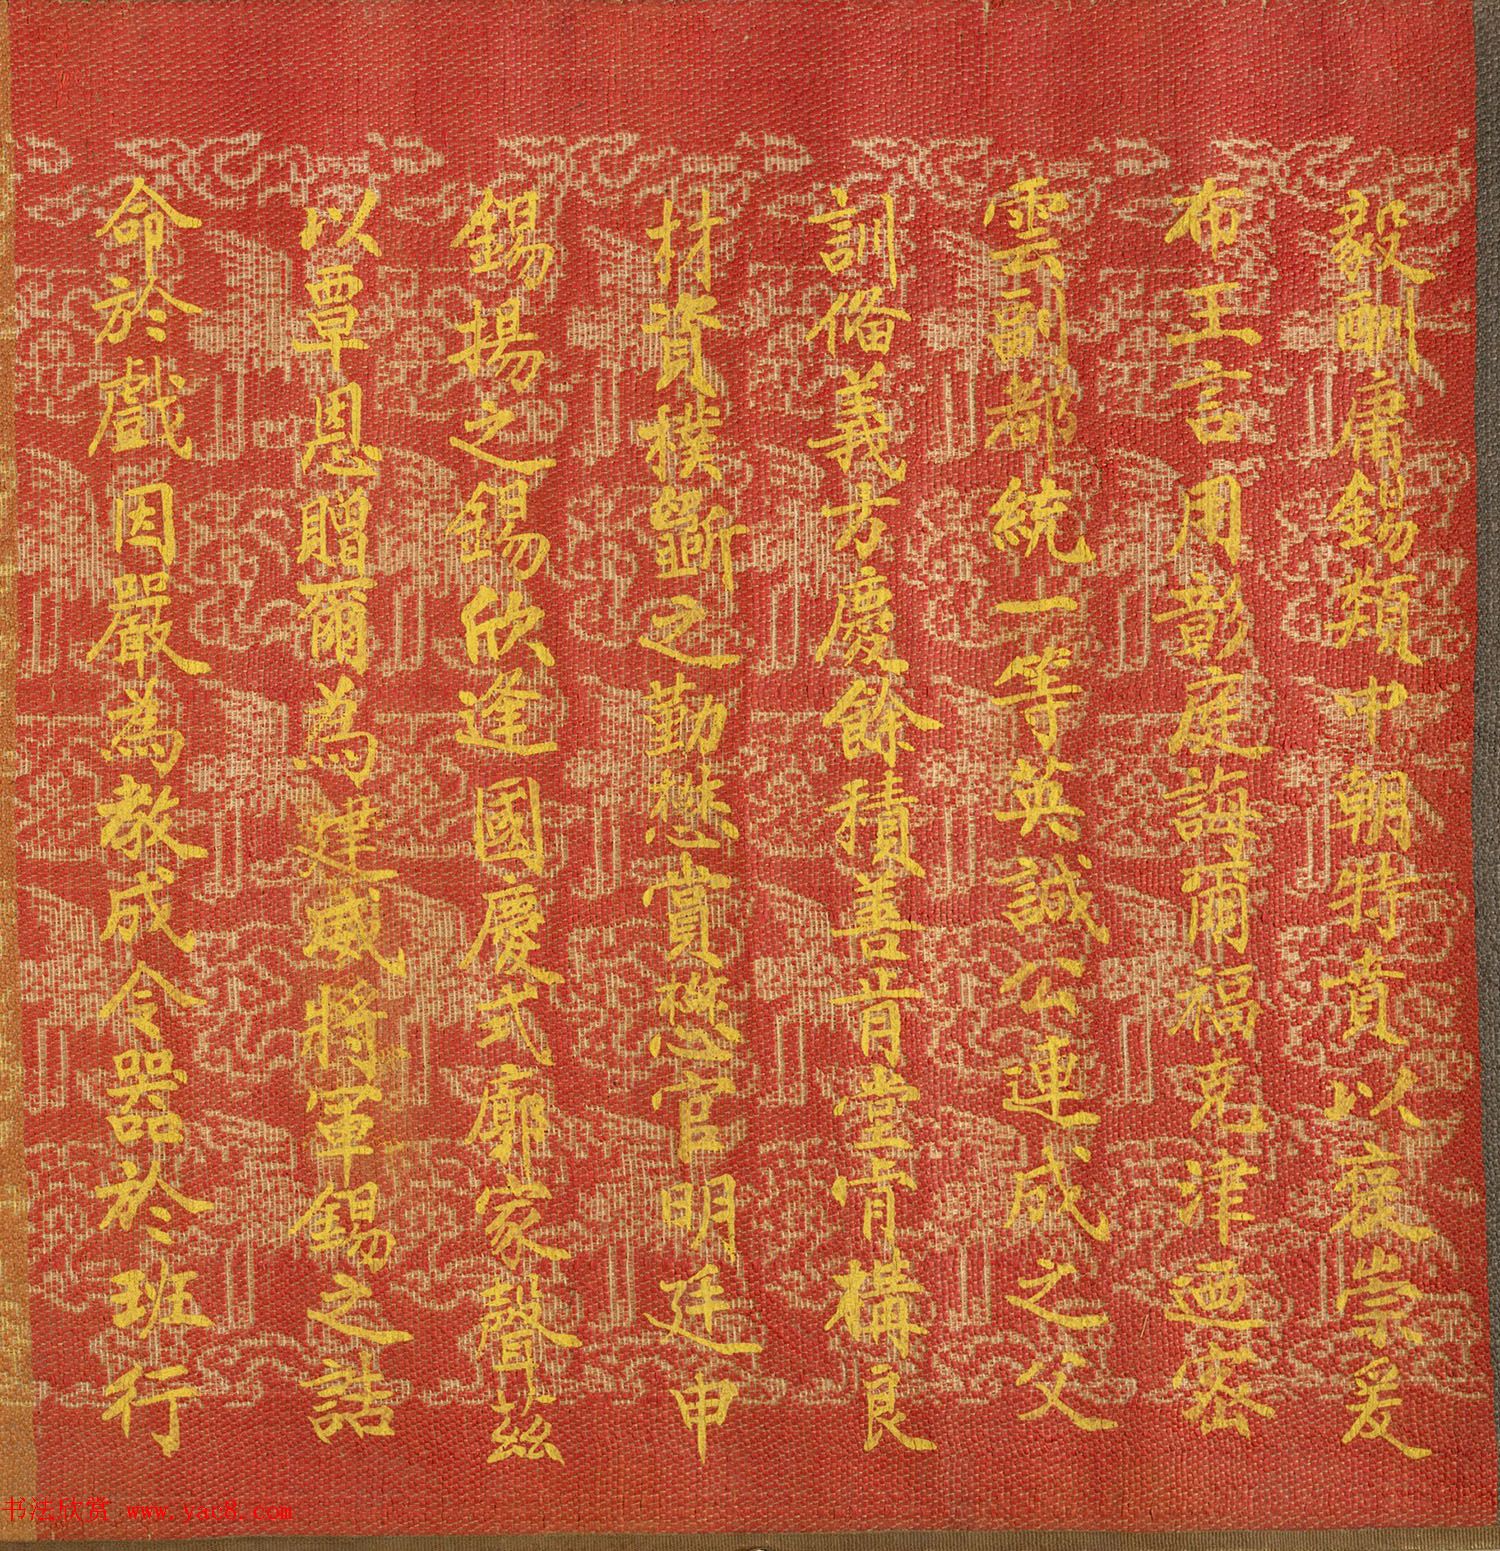 毅酬庸錫類中朝特賁以襃崇爰
布王言用彰庭誨爾福克津迺密
雲副都統一等英誠公連成之父
訓備義方慶餘積善肯堂肯構良
材資樸斲之勤懋賞懋官明廷申
錫揚之錫欣逢國慶式廓家聲茲
以覃恩贈爾為建威將軍錫之誥
命於戲因嚴為敬成令器於班行
书法欣赏 www.yac8.com